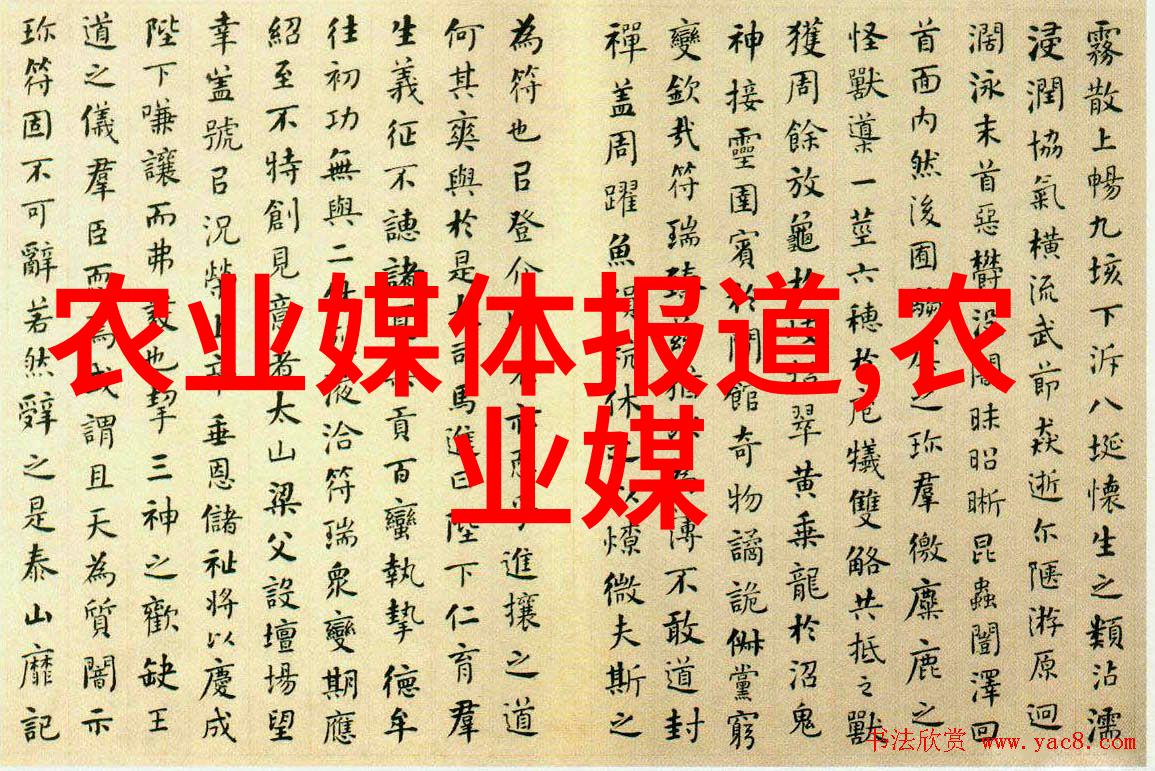 霧散上暢九垓下泝八埏懷生之類沾濡
浸潤協氣横流武節猋逝尓陿游原迥
濶泳末首惡欝没闇昧昭晰昆蟲闓澤回
首面内然後囿之珍羣徼麋鹿之
怪獸導一莖六穗於庖犧雙觡共抵之獸
獲周餘放龜於招翠黄乗龍於沼鬼
神接靈圉賓於閒館奇物譎詭俶黨窮
變欽哉符瑞臻薄不敢道封
禪盖周躍魚休之以燎微夫斯之
為符也㠯登介不亦恧乎進攘之道
何其爽與於是大司馬進曰陛下仁育羣
生義征不譓諸貢百蠻執摯德牟
往初功無與二液洽符瑞衆變期應
紹至不特創見意者太山梁父設壇場望
幸盖號㠯況榮上垂恩儲祉將以慶成
陛下嗛讓而弗發也挈三神之歡缺王
道之儀羣臣恧焉或謂且天為質闇示
珍符固不可辭若然辤之是泰山靡記
农业媒体报道,农
业媒
书法欣赏 www.yac8.com